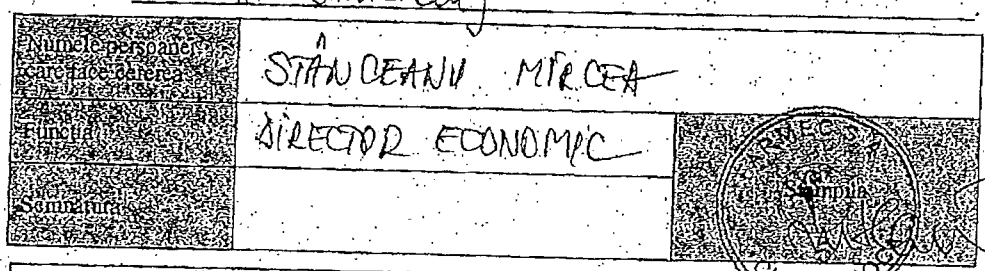 Numele persoanei
care face cererea
STÂNCEANU MIRCEA
Functia
DIRECTOR ECONOMIC
Stampila
Semnatura